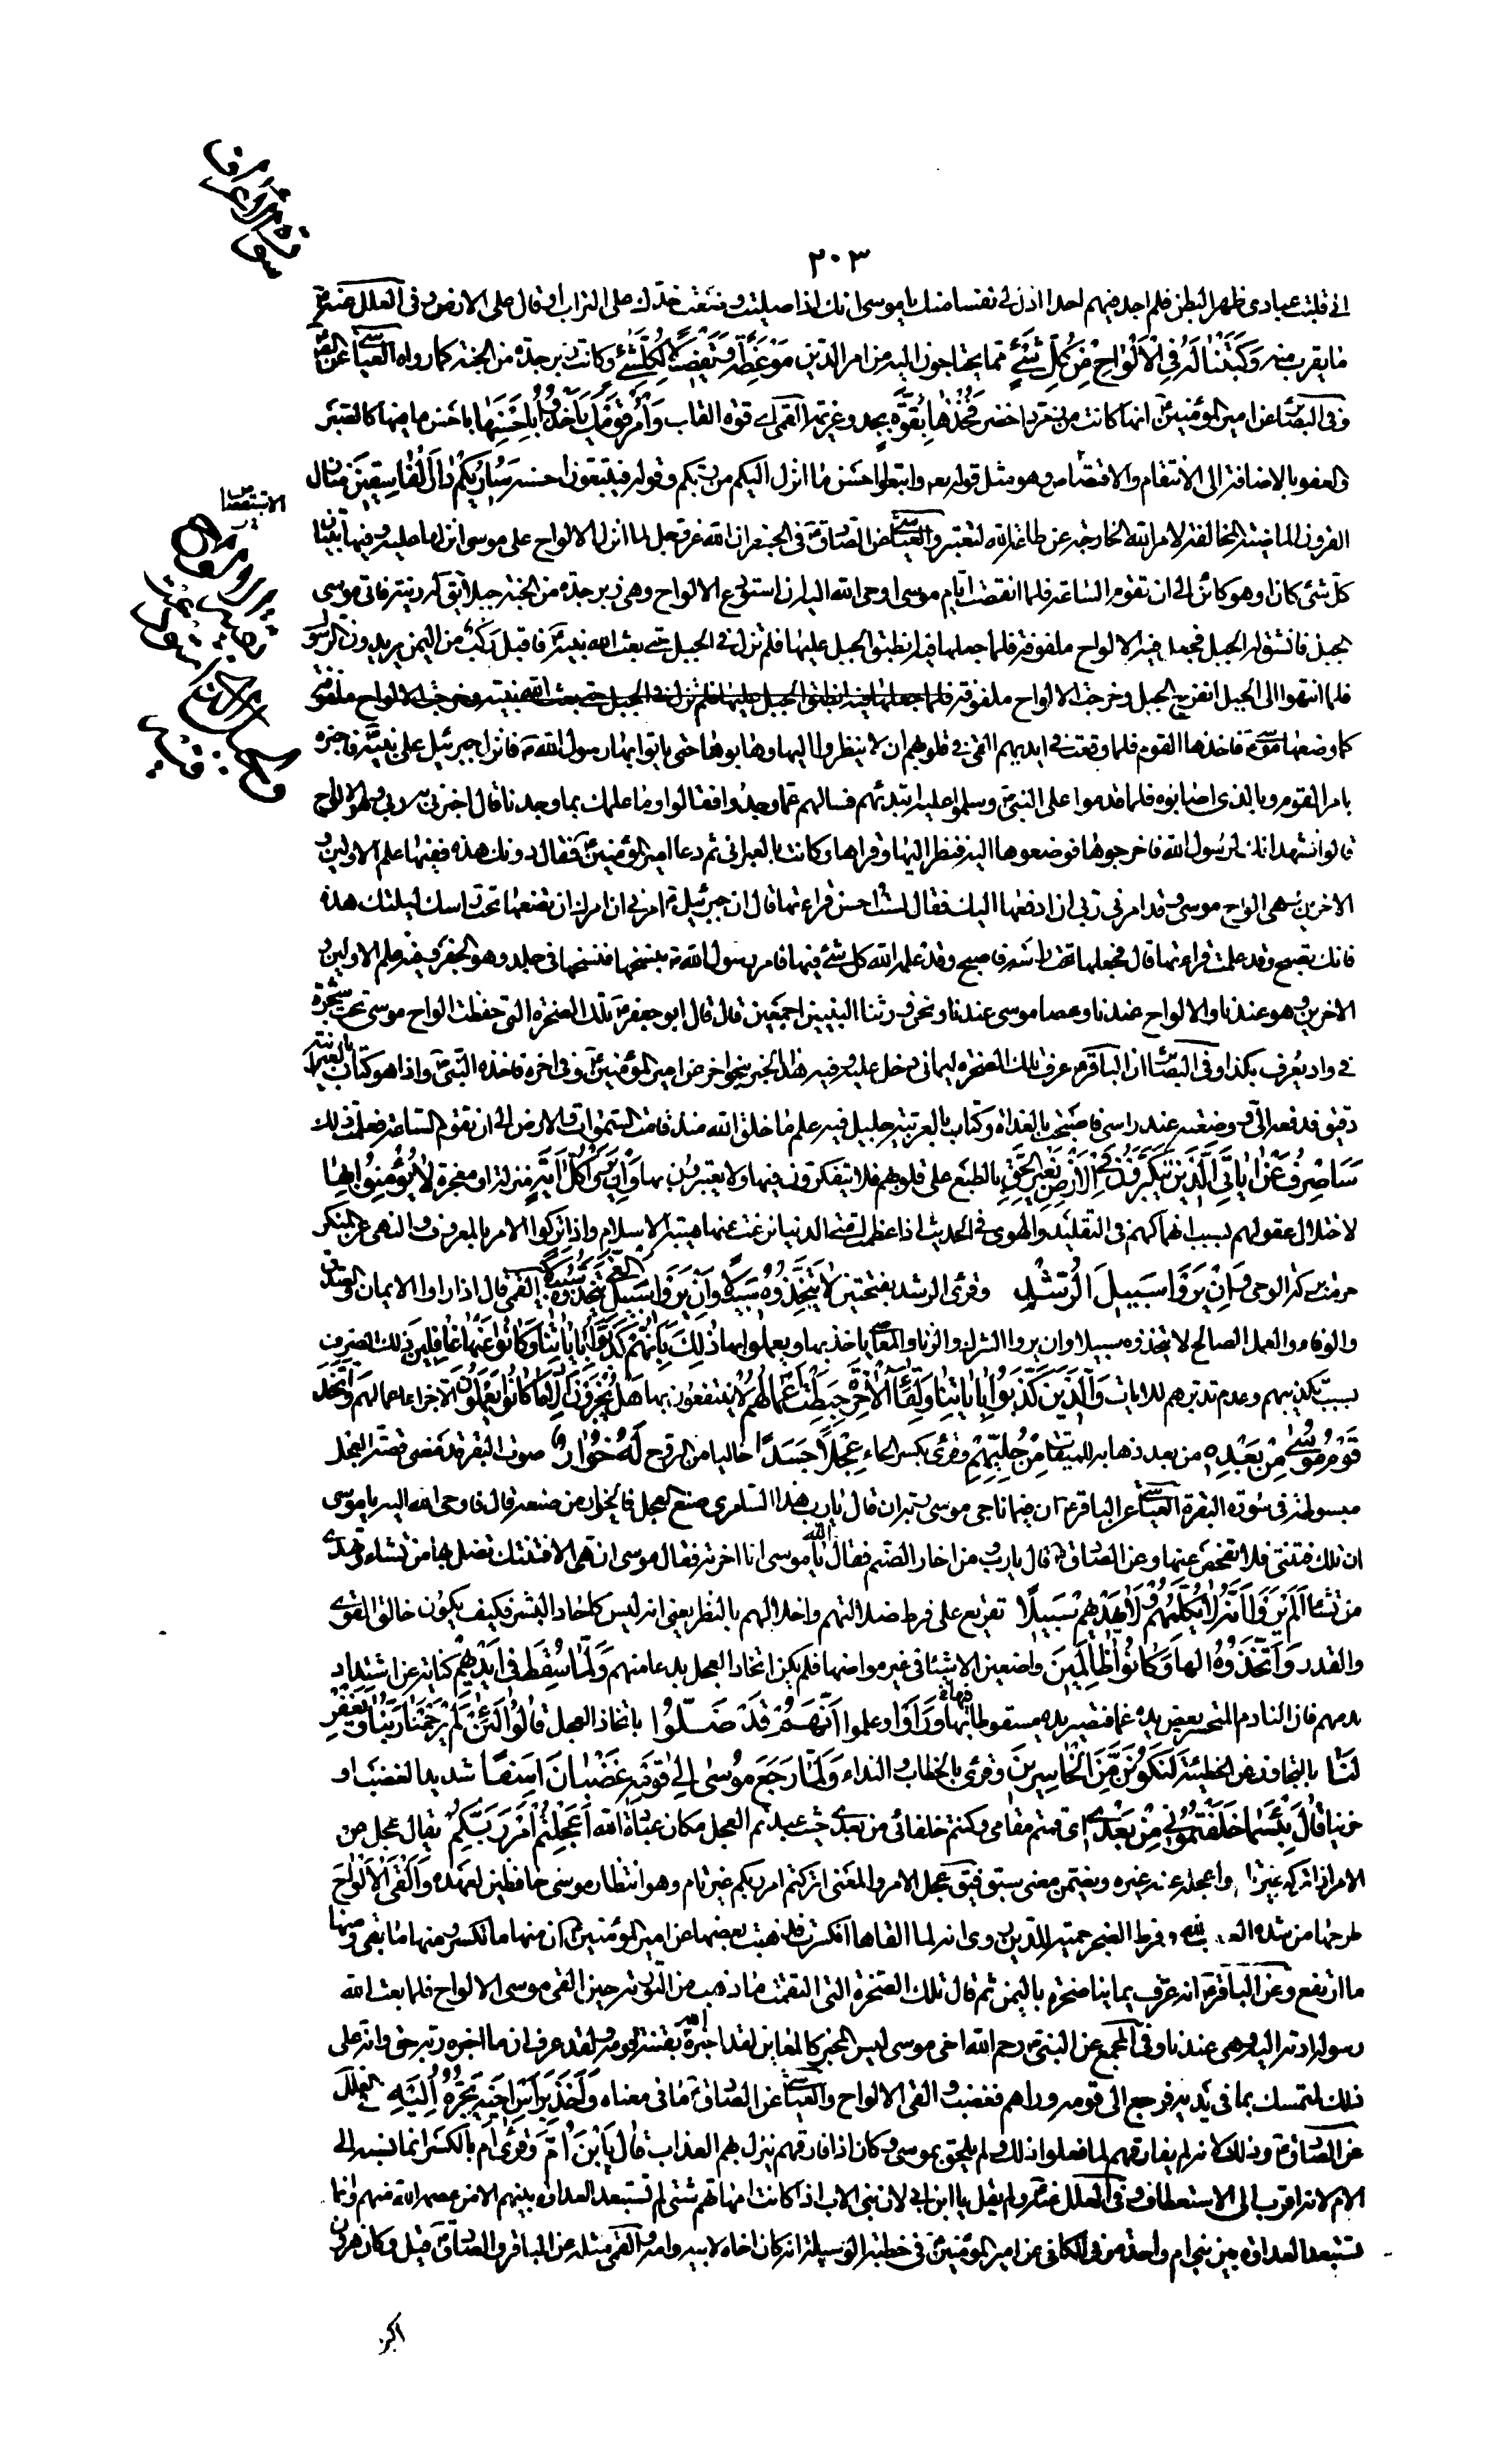 سورة الأعراف
٣٠٣
اني قلبت عبادى ظهر البطن فلم اجد فيهم احدا اذل لي نفسا منك يا موسى انك اذا صليت وضعت خدك على التراب او قال على الارض وفى العلل عنه ع
ما يقرب منه وَكَتَبْنا لَهُ فِي الْأَلْواحِ مِنْ كُلِّ شَيْءٍ مما يحتاجون اليه من امر الدين مَوْعِظَةً وَتَفْصِيلًا لِكُلِّ شَيْءٍ وكانت زبرجدة من الجنة كما رواه العياشي عن الصادق ع
وفى البصائر عن امير المؤمنين ع انها كانت من زمرد اخضر فَخُذْها بِقُوَّةٍ بجد وعزيمة القمى اى قوة القلب وَأْمُرْ قَوْمَكَ يَأْخُذُوا بِأَحْسَنِها باحسن ما فيها كالصبر
والعفو بالاضافة الى الانتقام والاقتصاص وهو مثل قوله تع واتبعوا احسن ما انزل اليكم من ربكم وقوله فيتبعون احسنه سَأُرِيكُمْ دارَ الْفاسِقِينَ منازل
القرون الماضية المخالفة لامر الله الخارجة عن طاعة الله لتعتبروا العياشي عن الصادق ع فى الجفر ان الله عز وجل لما انزل الالواح على موسى انزلها عليه وفيها تبيان
كل شئ كان او هو كائن الى ان تقوم الساعة فلما انقضت ايام موسى اوحى الله اليه ان استودع الالواح وهى زبرجدة من الجنة جبلا يقال له زينة فاتى موسى
الجبل فانشق له الجبل فجعل فيه الالواح ملفوفة فلما جعلها فيه انطبق الجبل عليها فلم تزل فى الجبل حتى بعث الله نبيه ص فاقبل ركب من اليمن يريدون الرسول
فلما انتهوا الى الجبل انفرج الجبل وخرجت الالواح ملفوفة فلما جعلها فيه انطبق الجبل عليها فلم تزل فى الجبل حتى بعث الله نبيه وخرجت الالواح ملفوفة
كما وضعها موسى ع فاخذها القوم فلما وقعت فى ايديهم القى فى قلوبهم ان لا ينظروا اليها وهابوها حتى ياتوا بها رسول الله ص فانزل جبرئيل على نبيه ص فاخبره
بامر القوم وبالذى اصابوه فلما قدموا على النبى ص وسلموا عليه ابتدئهم فسالهم عما وجدوا فقالوا وما علمك بما وجدنا قال اخبرنى به ربى وهو الالواح
قالوا نشهد انك لرسول الله فاخرجوها فوضعوها اليه فنظر اليها وقراها وكانت بالعبرانى ثم دعا امير المؤمنين ع فقال دونك هذه ففيها علم الاولين و
الاخرين وهى الواح موسى وقد امرنى ربى ان ادفعها اليك فقال لست احسن قراءتها قال ان جبرئيل ع امرنى ان امرك ان تضعها تحت راسك ليلتك هذه
فانك تصبح وقد علمت قراءتها قال فجعلها تحت راسه فاصبح وقد علمه الله كل شئ فيها فامره رسول الله ص بنسخها فنسخها فى جلد وهو الجفر وفيه علم الاولين و
الاخرين وهو عندنا والالواح عندنا وعصا موسى عندنا ونحن ورثنا النبيين اجمعين قال قال ابو جعفر ع تلك الصخرة التى حفظت الواح موسى تحت شجرة
فى واد يعرف بكذا وفى البصائر ان الباقر ع عرف تلك الصخرة ليمانى دخل عليه وفيه هذا الخبر بنحو اخر عن امير المؤمنين ع وفى اخره فاخذه النبى ص واذا هو كتاب بالعبرانية
دقيق فدفعه الى ووضعته عند راسى فاصبحت بالغداة وكتاب بالعربية جليل فيه علم ما خلق الله منذ قامت السموات والارض الى ان تقوم الساعة فعلمت ذلك
سَأَصْرِفُ عَنْ آياتِيَ الَّذِينَ يَتَكَبَّرُونَ فِي الْأَرْضِ بِغَيْرِ الْحَقِّ بالطبع على قلوبهم فلا يتفكرون فيها ولا يعتبرون بها وَإِنْ يَرَوْا كُلَّ آيَةٍ منزلة او معجزة لا يُؤْمِنُوا بِها
لاختلال عقولهم بسبب انهماكهم فى التقليد والهوى فى الحديث اذا عظمت امتى الدنيا نزعت عنها هيبة الاسلام واذا تركوا الامر بالمعروف والنهى عن المنكر
حرمت بركة الوحى وَإِنْ يَرَوْا سَبِيلَ الرُّشْدِ وقرئ الرشد بفتحتين لا يَتَّخِذُوهُ سَبِيلًا وَإِنْ يَرَوْا سَبِيلَ الْغَيِّ يَتَّخِذُوهُ سَبِيلًا القمى قال اذا راوا الايمان والصدق
والوفاء والعمل الصالح لا يتخذوه سبيلا وان يروا الشرك والزنا والمعاصى ياخذ بها ويعملوا بها ذلِكَ بِأَنَّهُمْ كَذَّبُوا بِآياتِنا وَكانُوا عَنْها غافِلِينَ ذلك الصرف
بسبب تكذيبهم وعدم تدبرهم للايات وَالَّذِينَ كَذَّبُوا بِآياتِنا وَلِقاءِ الْآخِرَةِ حَبِطَتْ أَعْمالُهُمْ لا ينتفعون بها هَلْ يُجْزَوْنَ إِلَّا ما كانُوا يَعْمَلُونَ الا جزاء اعمالهم وَاتَّخَذَ
قَوْمُ مُوسى مِنْ بَعْدِهِ من بعد ذهابه للميقات مِنْ حُلِيِّهِمْ وقرئ بكسر الحاء عِجْلًا جَسَداً خاليا من الروح لَهُ خُوارٌ صوت البقر قد مضى قصة العجل
مبسوطة فى سورة البقرة العياشي عن الباقر ع ان فيما ناجى موسى ربه ان قال يا رب هذا السامرى صنع العجل فالخوار من صنعه قال فاوحى الله اليه يا موسى
ان تلك فتنتى فلا تفحص عنها وعن الصادق ع قال يا رب ومن اخار الصنم فقال الله يا موسى انا اخرته فقال موسى ان هى الا فتنتك تضل بها من تشاء وتهدى
من تشاء أَلَمْ يَرَوْا أَنَّهُ لا يُكَلِّمُهُمْ وَلا يَهْدِيهِمْ سَبِيلًا تقريع على فرط ضلالتهم واخلالهم بالنظر يعنى انه ليس كاحاد البشر فكيف يكون خالق القوى
والقدر وَاتَّخَذُوهُ الها وَكانُوا ظالِمِينَ واضعين الاشياء فى غير مواضعها فلم يكن اتخاذ العجل بدعا منهم وَلَمَّا سُقِطَ فِي أَيْدِيهِمْ كناية عن اشتداد
ندمهم فان النادم المتحسر يعض يده غما فتصير يده مسقوطا فيها وَرَأَوْا وعلموا أَنَّهُمْ قَدْ ضَلُّوا باتخاذ العجل قالُوا لَئِنْ لَمْ يَرْحَمْنا رَبُّنا وَيَغْفِرْ
لَنا بالتجاوز عن الخطيئة لَنَكُونَنَّ مِنَ الْخاسِرِينَ وقرئ بالخطاب والنداء وَلَمَّا رَجَعَ مُوسى إِلى قَوْمِهِ غَضْبانَ أَسِفاً شديد الغضب او
حزينا قالَ بِئْسَما خَلَفْتُمُونِي مِنْ بَعْدِي اى قمتم مقامى وكنتم خلفائى من بعدى حيث عبدتم العجل مكان عبادة الله أَعَجِلْتُمْ أَمْرَ رَبِّكُمْ يقال عجل عن
الامر اذا تركه غير تام واعجله عنه غيره ويضمن معنى سبق فيق عجل الامر والمعنى اتركتم امر ربكم غير تام وهو انتظار موسى حافظين لعهده وَأَلْقَى الْأَلْواحَ
طرحها من شدة الغضب لله وفرط الضجر حمية للدين روى انه لما القاها انكسرت فذهبت بعضها عن امير المؤمنين ع ان منها ما تكسر ومنها ما بقى ومنها
ما ارتفع وعن الباقر ع انه عرف يمانيا صخرة باليمن ثم قال تلك الصخرة التى التقمت ما ذهب من التورية حين القى موسى الالواح فلما بعث الله
رسوله ادته اليه وهى عندنا وفى المجمع عن النبى ص رحم الله اخى موسى ليس المخبر كالمعاين لقد اخبره الله بفتنة قومه ولقد عرف ان ما اخبره ربه حق وانه على
ذلك لتمسك بما فى يديه فرجع الى قومه وراهم فغضب والقى الالواح والعياشي عن الصادق ع ما فى معناه وَأَخَذَ بِرَأْسِ أَخِيهِ يَجُرُّهُ إِلَيْهِ العلل
عن الصادق ع وذلك لانه لم يفارقهم لما فعلوا ذلك ولم يلحق بموسى وكان اذا فارقهم ينزل بهم العذاب قالَ يَا بْنَ أُمَّ وقرئ ام بالكسر انما نسبه الى
الام لانه اقرب الى الاستعطاف وفى العلل عنه ع ولم يقل يا ابن ابى لان بنى الاب اذا كانت امهاتهم شتى لم تستبعد العداوة بينهم الا من عصمه الله منهم وانما
تستبعد العداوة بين بنى ام واحدة وفى الكافى عن امير المؤمنين ع فى خطبة الوسيلة انه كان اخاه لابيه وامه والقمى مثله عن الباقر والصادق ع قيل وكان هرون
اكبر